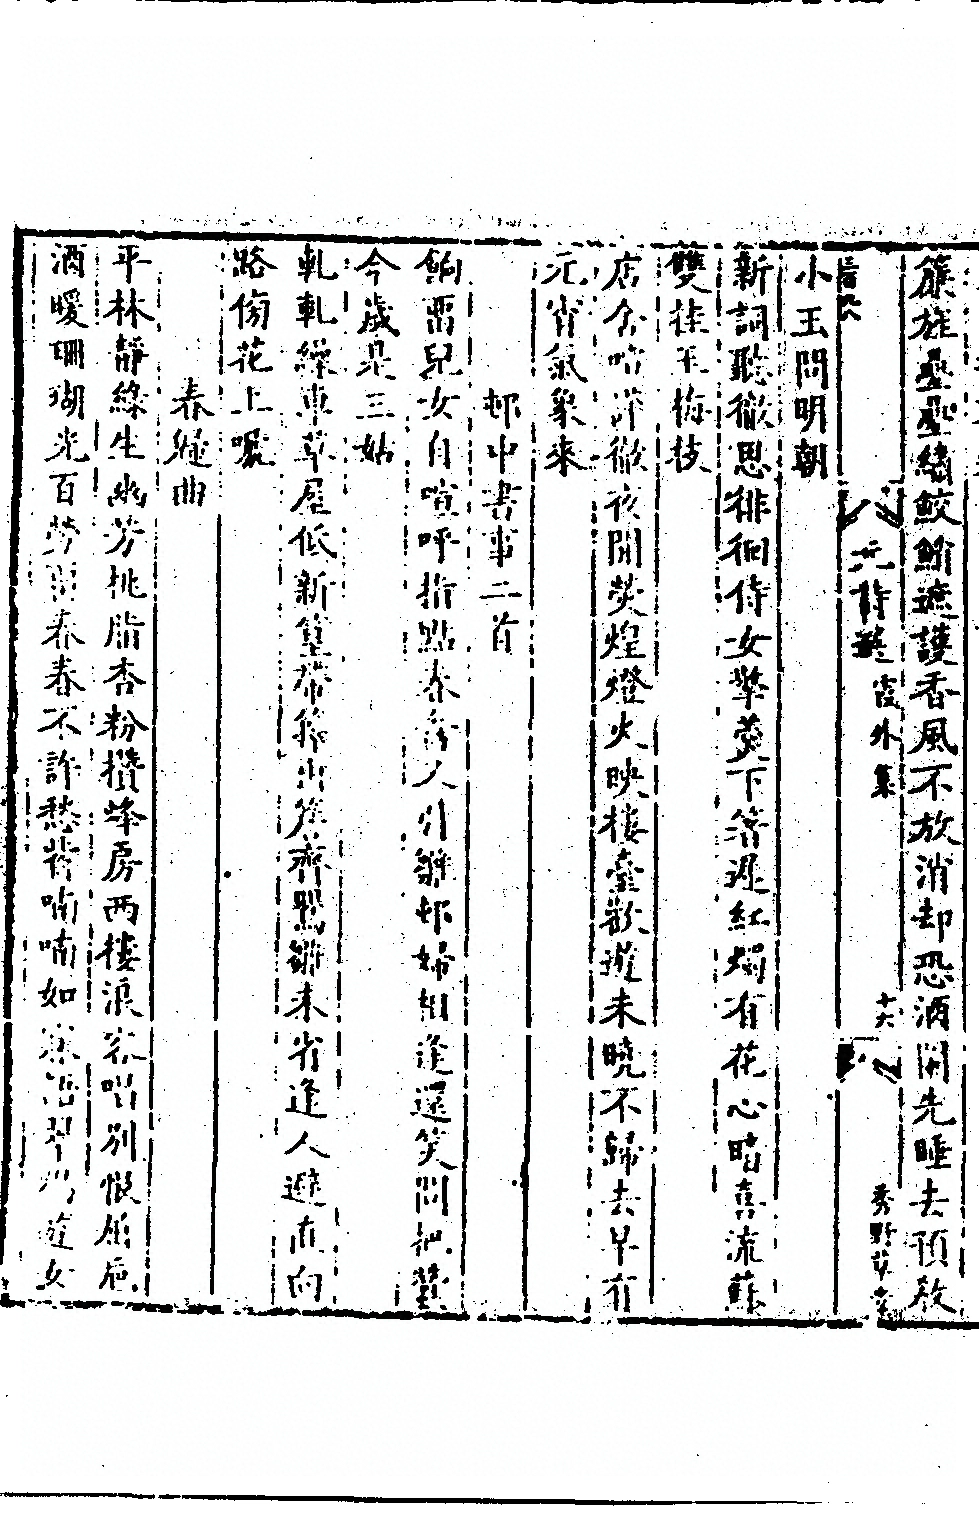 簇旌疊疊繡鮫鮹遮護香風不放消却恐酒闌先睡去預敎
元詩選 霞外集 十六 秀野草堂
小玉問明朝
新詞聽徹思徘徊侍女擎羹下箸遲紅燭有花心暗喜流蘇
雙挂玉梅枝
店舍喧譁徹夜開熒煌燈火映樓臺歡遊未曉不歸去早有
元宵氣象來
邨中書事二首
餉罷兒女自喧呼指點春禽人引雛邨婦相逢還笑問把蠶
今歲是三姑
軋軋繅車草屋低新篁帶籜出笆齊鵶雛未省逢人避直向
路傍花上啼
春遊曲
平林靜綠生幽芳桃脂杏粉攢蜂房西樓浪客唱別恨
酒暖珊瑚光百勞 春春不許愁鶯喃喃如寐語翠 遊女